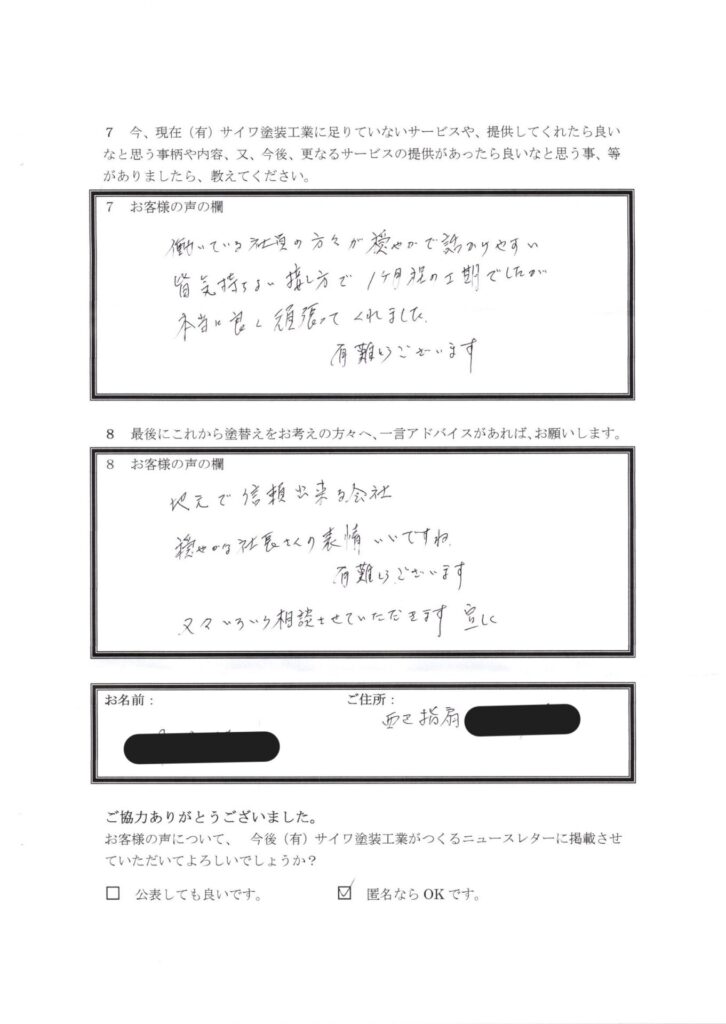 7 今、現在（有）サイワ塗装工業に足りていないサービスや、提供してくれたら良い
なと思う事柄や内容、又、今後、更なるサービスの提供があったら良いなと思う事、等
がありましたら、教えてください。
7 お客様の声の欄
働いている社員の方々が穏やかで話かけやすい
皆気持ちよい接し方で 1ヶ月程の工期でしたが
本当に良く頑張ってくれました。
有難うございます
8 最後にこれから塗替えをお考えの方々へ、一言アドバイスがあれば、お願いします。
8 お客様の声の欄
地元で信頼出来る会社
穏やかな社長さんの表情いいですね。
有難うございます
又々いろいろ相談させていただきます 宜しく
お名前：
ご住所：
西区指扇
ご協力ありがとうございました。
お客様の声について、 今後（有）サイワ塗装工業がつくるニュースレターに掲載させ
ていただいてよろしいでしょうか？
□ 公表しても良いです。
☑ 匿名なら OK です。